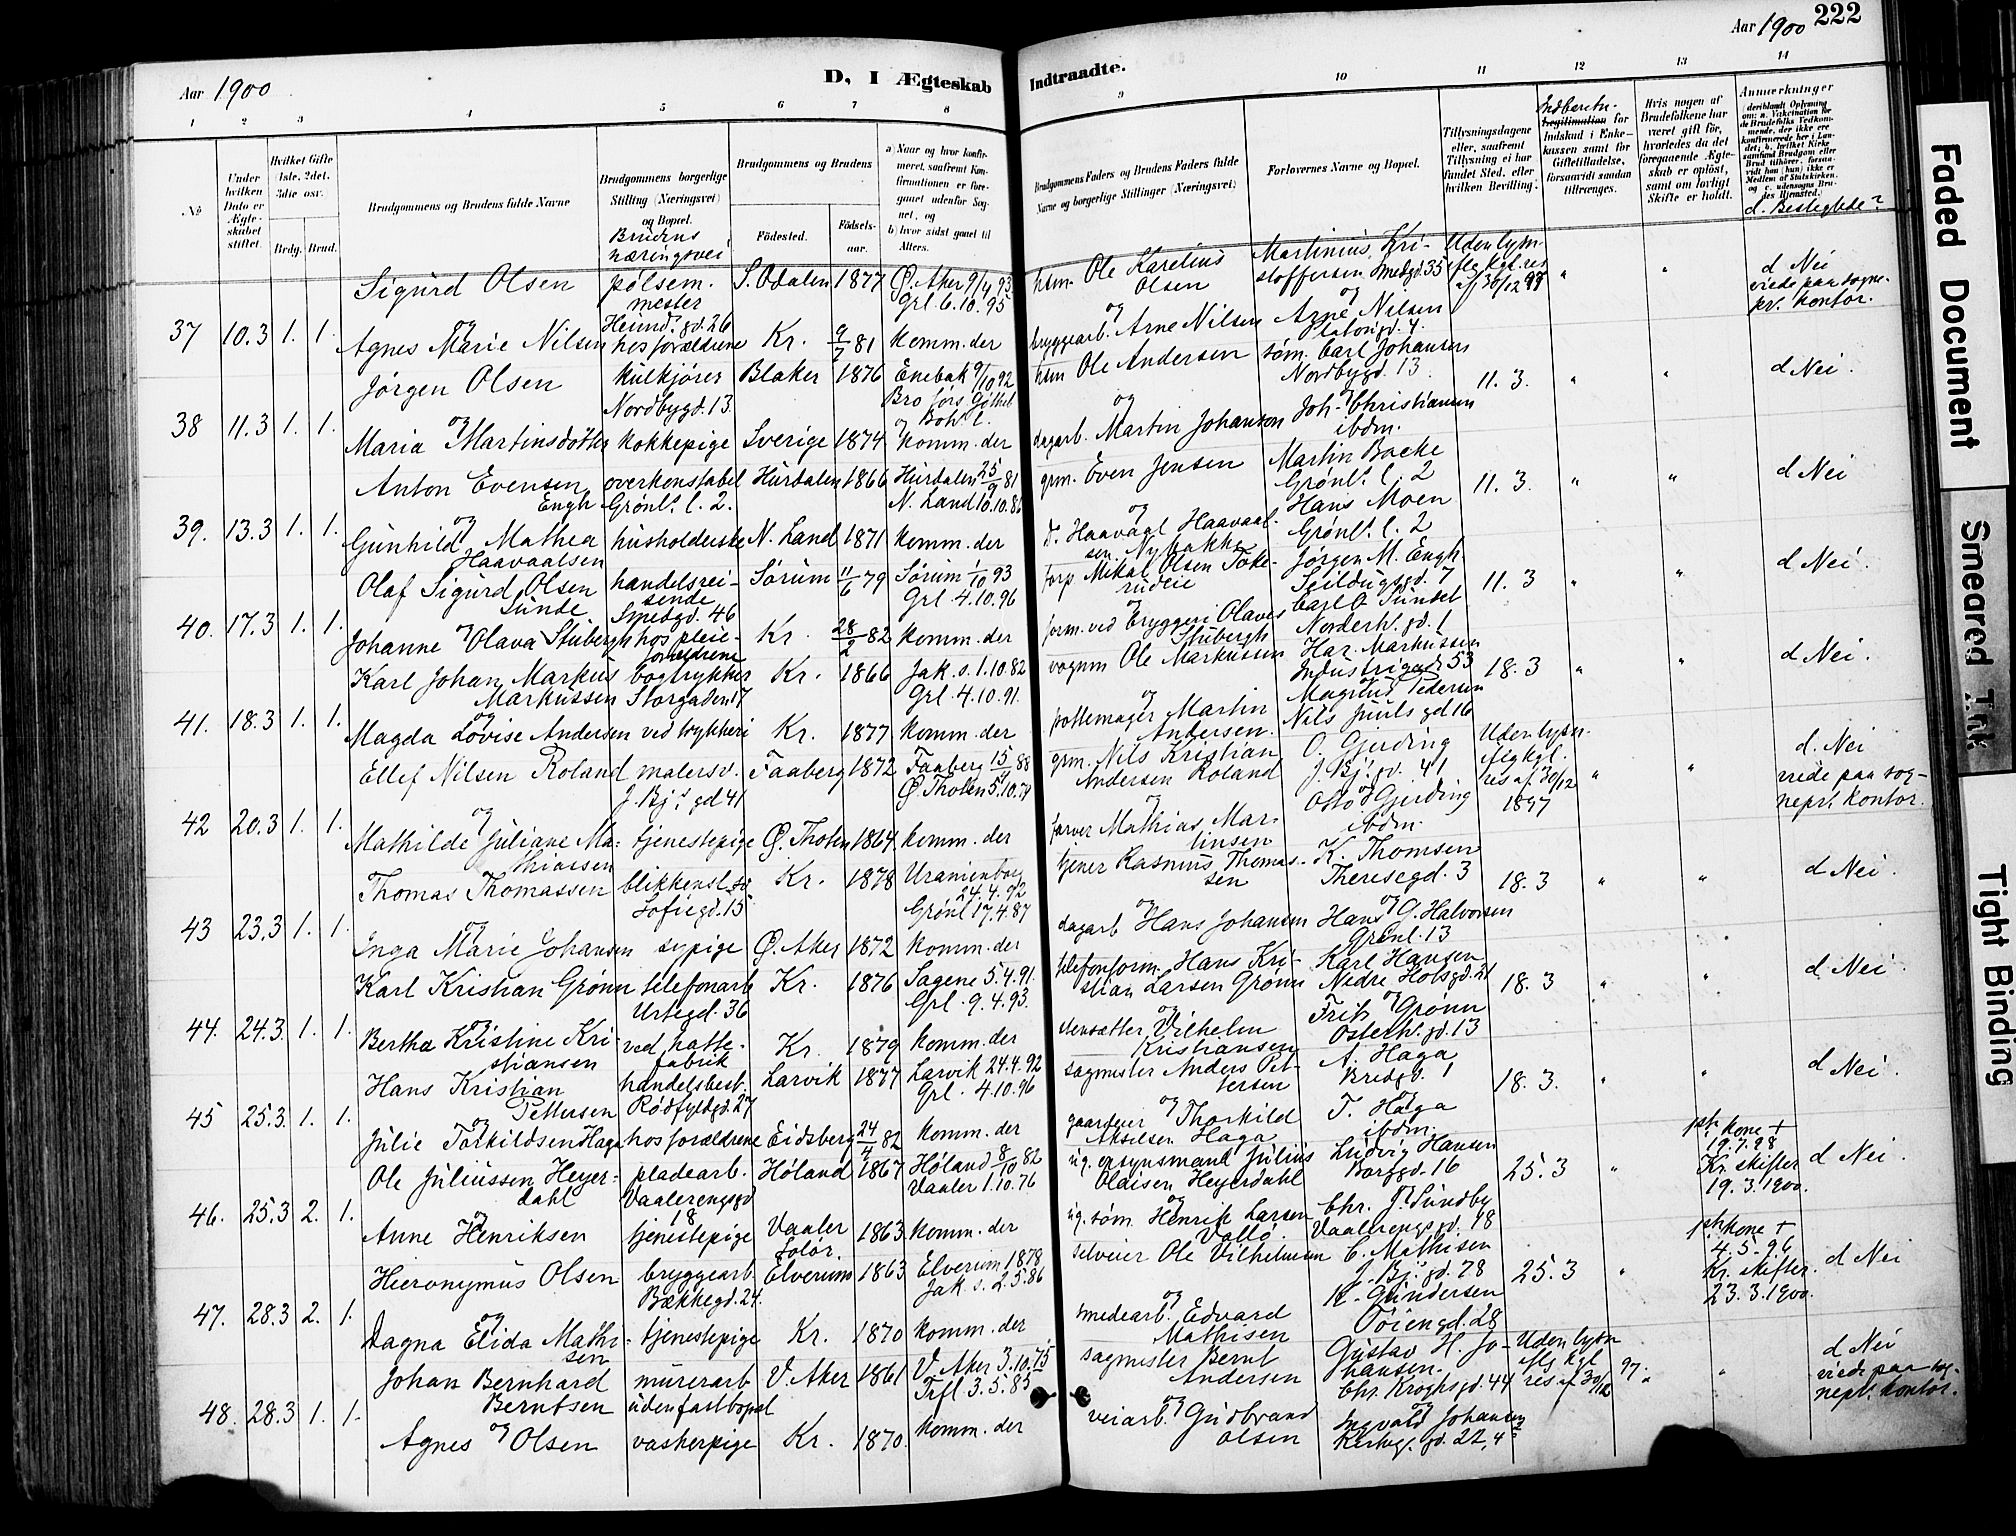 Aar 1900
D, I Ægteskab
Indtraadte.
Aar 1900
222
1 2 3 4 5 6 7 8
9 10 11 12 13 14
No
Under hvilken Dato er Ægteskabet stiftet.
Hvilket Gifte (1ste, 2det, 3die osv.
Brdg. Brud.
Brudgommens og Brudens fulde Navne
Brudgommens borgerlige Stilling (Næringsvei) og Bopæl.
Brudens næringsvei
Brudgommens og Brudens
Fødested.
Fødselsaar.
a) Naar og hvor konfirmeret, saafremt Konfirmationen er foregaaet udenfor Sognet, og
b) hvor sidst gaaet til Alters.
Brudgommens Faders og Brudens Faders fulde Navne og borgerlige Stillinger (Næringsvei)
Forlovernes Navne og Bopæl.
Tillysningsdagene eller, saafremt Tillysning ei har fundet Sted, efter hvilken Bevilling.
Indberetn.
Legitimation for Indskud i Enkekassen samt for Giftetilladelse, forsaavidt saadan tiltrænges.
Hvis nogen af Brudefolkene har været gift før, hvorledes da det foregaaende Ægteskab er opløst, samt om lovligt Skifte er holdt.
Anmerkninger
d. Beslegtede?
37 10.3 1. 1.
Sigurd Olsen pølsem.mester Heimd. gd. 26 S. Odalen 1877 Ø. Aker 9/4 93 Grl. 6.10.95
og
Agnes Marie Nilsen hos forældrene Kr. 9/7 81 komm. der
hsm. Ole Karelius Olsen
og
bryggearb. Arne Nilsen
Martinius Kristoffersen Smedgd. 35
og
Arne Nilsen Platougd. 4
Uden lysn. iflg kgl. res af 30/12 97 " "
d Nei viede paa sogne-pr. kontor.
38 11.3 1. 1.
Jørgen Olsen kulkjører Nordbygd. 13. Blaker 1876 Enebak 9/10 92 Bro fors. Gøtheb
og Boh. l.
Maria Martinsdotter kokkepige Sverige 1874 komm. der
hsm Ole Andersen
og
dagarb. Martin Johanson
søm. Carl Johansen Nordbygd. 13.
Joh. Christiansen ibdm.
11. 3. " "
d Nei.
39. 13.3 1. 1.
Anton Evensen Engh overkonstabel Grønl. l. 2. Hurdalen 1866 Hurdalen 25/9 81 N. Land 10.10.86
og
Gunhild Mathea Haavaalsen husholderske N. Land 1871 komm. der
grm. Even Jensen
og
d. Haavaal Haavaalsen Nybakke
Martin Backe Grønl. l. 2
Hans Moen Grønl. l. 2
11. 3. " "
d Nei
40. 17.3 1. 1.
Olaf Sigurd Olsen Sunde handelsreisende Smedgd. 46 Sørum 11/6 79 Sørum 1/10 93 Grl. 4.10.96
og
Johanne Olava Stubergh hos pleieforældrene Kr. 28/2 82 komm. der
forp Mikal Olsen Tokerudeie
og
form. ved bryggeri Olaves Stubergh
Jørgen M. Engh Seildugsgd. 7
Carl O Sundet Norderh. gd. 1
11. 3 " "
d Nei.
41. 18.3 1. 1.
Karl Johan Markus Markussen bogtrykker Storgaden 17 Kr. 1866 Jak. s. 1.10.82 Grl. 4.10.91.
og
Magda Lovise Andersen ved trykkeri Kr. 1877 komm. der
vognm Ole Markussen
og
pottemager Martin Andersen.
Har. Markussen Industrigad. 53
Magnus Pedersen Nils Juuls gd 16
18. 3 " "
d Nei.
42 20.3 1. 1.
Ellef Nilsen Roland malersv. J. Bj. gd 41 Faaberg 1872 Faaberg 15/11 88 Ø. Thoten 5.10.79
og
Mathilde Juliane Mathiasen tjenestepige Ø. Thoten 1864 komm. der
grm. Nils Kristian Andersen Roland
og
farver Mathias Martinsen
O. Gjerding J. Bj. gd. 41
og
Gjerding ibdm.
Uden lysn. iflg kgl. res af 30/12 1897 " "
d. Nei viede paa sognepr. kontor.
43 23.3 1. 1.
Thomas Thomassen blikkensl. sv. Sofiegd. 15 Kr. 1878 Uranienborg 24.4.92 Grønl 17.4.87
og
Inga Marie Johansen sypige Ø. Aker 1872 komm. der
tjener Rasmus Thomassen
og
dagarb Hans Johansen
K. Thomsen Theresegd. 3
og
Hans G. Halvorsen Grønl. 13
18. 3 " "
d Nei.
44. 24.3. 1. 1.
Karl Kristian Grønn telefonarb Urtegd. 36 Kr. 1876 Sagene 5.4.91. Grl. 9.4.93.
og
Bertha Kristine Kristiansen ved hattefabrik Kr. 1879 komm. der
telefonform. Hans Kristian Larsen Grønn
og
stensætter Vilhelm Kristiansen
Karl Hansen Nedre Holsgd. 21
og
Frits Grønn Osterh. gd. 13
18. 3 " "
d Nei.
45 25.3. 1. 1.
Hans Kristian Pettersen handelsbest. Rødfyldgd. 27 Larvik 1877 Larvik 24.4.92 Grl. 4.10.96
og
Julie Torkildsen Haga hos forældrene Eidsberg 24/4 82 komm. der
sagmester Anders Pettersen
og
gaardeier Thorkild Akselsen Haga
A. Haga Bredgd. 1
og
T. Haga ibdm.
18. 3. " "
d Nei.
46. 25.3 2. 1.
Ole Juliussen Heyerdahl pladearb. Vaalerengsgd 18 Høland 1867 Høland 8/10 82 Vaaler 1.10.76
og
Anne Henriksen tjenestepige Vaaler Solør. 1863 komm. der
ug. opsynsmand Julius Olaisen Heyerdahl
og
ug. søm. Henrik Larsen Vallø
Ludvig Hansen Borggd. 16
Chr. J. Sundby Vaalerengsgd. 18
25. 3 "
1ste kone + 19.7.98 Kr. skifter 19.3.1900.
d Nei.
47. 28.3 2. 1.
Hieronymus Olsen bryggearb Bækkegd. 24. Elverum 1863 Elverum 1878 Jak s. 2.5.86
og
Dagna Elida Mathisen tjenestepige Kr. 1870 komm. der
selveier Ole Vilhelmsen
og
smedearb. Edvard Mathisen
C. Mathisen J. Bj. gd. 78
K. Gundersen Tøiengd. 28
25. 3 "
1ste kone + 4.5.96 Kr. skifter. 23.3.1900.
d Nei
48. 28.3 1. 1.
Johan Bernhard Berntsen murerarb uden fast bopæl V. Aker 1861 V. Aker 3.10.75 Trfl. 3.5.85
og
Agnes Olsen vaskerpige Kr. 1870. komm. der
sagmester Bernt Andersen
og
veiarb. Gudbrand Olsen
Gustav H. Johansen. Chr. Kroghsgd. 44
og
Ingvald Johansen Kirkeg. gd. 22,4
Uden lysn iflg kgl res af 30/12 97. " "
d Nei viede paa sognepr. kontor.
Faded Document
Smeared Ink
Tight Binding